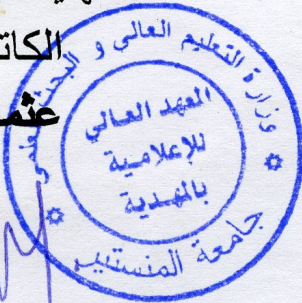 الكاتب
عثمـ
وزارة التعليم العالي و البحث العلمي
المعهد العالي
للإعلامية
بالمهدية
جامعة المنستير